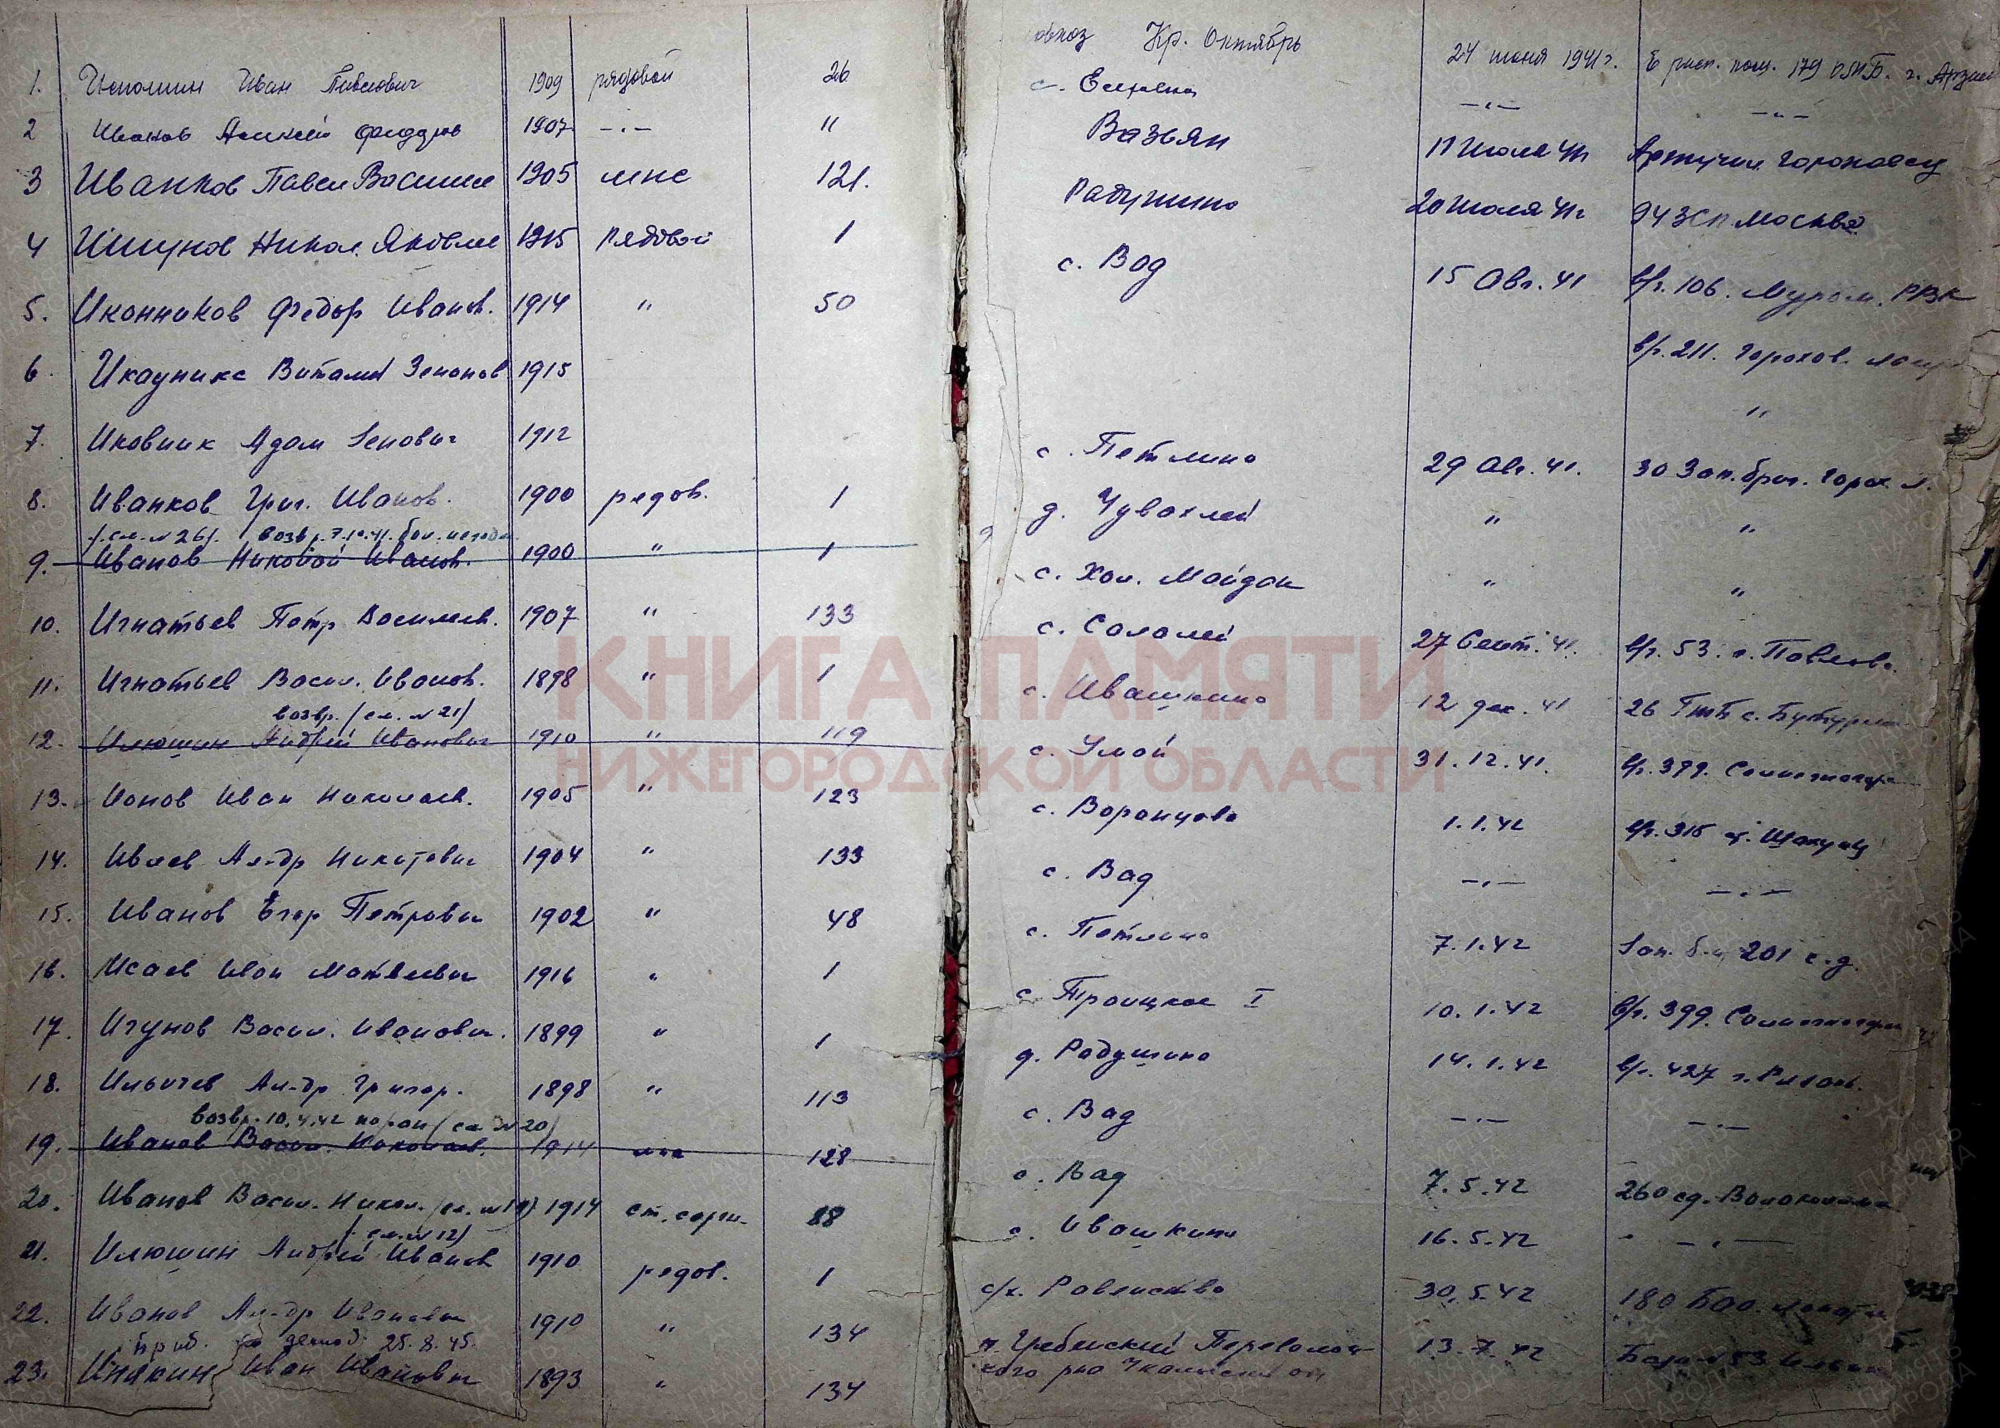 1. Иван Павлович 1909 рядовой 26 совхоз Кр. Октябрь 24 июня 1941 г. В расп. ком. 179 г.
2 Иванов Алексей 1907 –·– " с. –·– –·–
3 Иванков Павел Василье 1905 мнс 121. Вазьян 11 Июля 41г
4 Ишунов Никол. Яковле 1915 Рядовой 1 Радушино 20 Июля 41г 94 ЗСП Москва
5. Иконников Федор Иванов. 1914 " 50 с. Вад 15 Авг. 41 в/ч. 106. Муром. РВК
6. Витали 1915 в/ч. 211. Горохов.
7. Адам 1912 "
8. Иванков Григ. Иванов. 1900 рядов. 1 с. Петлино 29 Авг. 41. 30 Зап. бриг. Горох. л.
/см. № 26/. возвр. 7.10.41.
9. Иванов Николай Иванов. 1900 " 1 д. Чувахлей " "
10. Игнатьев Петр Василев. 1907 " 133 с. Хол. Майдан " "
11. Игнатьев Васил. Иванов. 1898 " 1 с. Салалей 27 Сент. 41. в/ч. 53. г. Павлово
возвр. /см. № 21/
12. Илюшин Андрей Иванович 1910 " 119 с. Ивашкино 12 дек. 41 26 с.
13. Ионов Иван Николаев. 1905 " 123 с. Умай 31.12.41. в/ч. 399.
14. Ивлев Ал-др Никитович 1904 " 133 с. Воронцово 1.1.42 в/ч. 315
15. Иванов Егор Петрович 1902 " 48 с. Вад –·– –·–
16. Исаев Иван Матвеевич 1916 " 1 с. Петлино 7.1.42 Зап. б-н 201 с.д.
17. Игунов Васил. Иванович. 1899 " 1 с. Троицкое I 10.1.42 в/ч. 399.
18. Ильичев Ал-др Григор. 1898 " 113 д. Радушино 14.1.42 в/ч. 427 г. Рязань.
возвр. 10.4.42 по ран /см № 20/
19. Иванов Васил. Николаев. 1914 мнс 128 с. Вад –·– –·–
20. Иванов Васил. Никол. /см. № 19/ 1914 ст. серж. 88 с. Вад 7.5.42 260 сд.
/см. № 12/
21. Илюшин Андрей Иванов 1910 рядов. 1 с. Ивашкино 16.5.42 –·–
22. Иванов Ал-др Иванович 1910 " 134 с/х. Равенство 30.5.42 180
Приб. по демоб. 25.8.45.
23. Инякин Иван Иванович 1893 " 134 п. Гребенский Переволоц- 13.7.42 База № 83
кого р-на
КНИГА ПАМЯТИ
НИЖЕГОРОДСКОЙ ОБЛАСТИ
ПАМЯТЬ НАРОДА